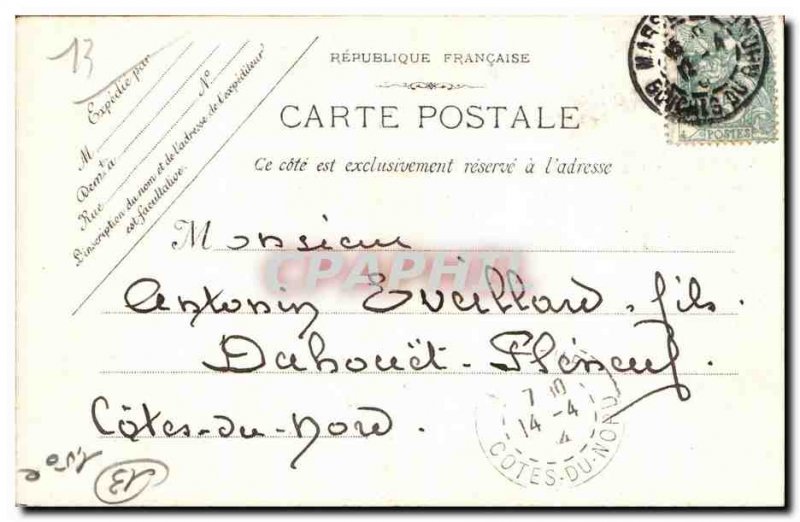 13
RÉPUBLIQUE FRANÇAISE
CARTE POSTALE
Ce côté est exclusivement réservé à l'adresse
Expédié par
M
N°
Demt à
Rue
L'inscription du nom et de l'adresse de l'expéditeur
est facultative.
BOUCHES DU RHONE
POSTES
Monsieur
CPAPHIL
Antonin Eveillard fils.
Dahouët-Pléneuf.
Côtes-du-Nord.
7
14-4
4
COTES-DU-NORD
1,50e
13